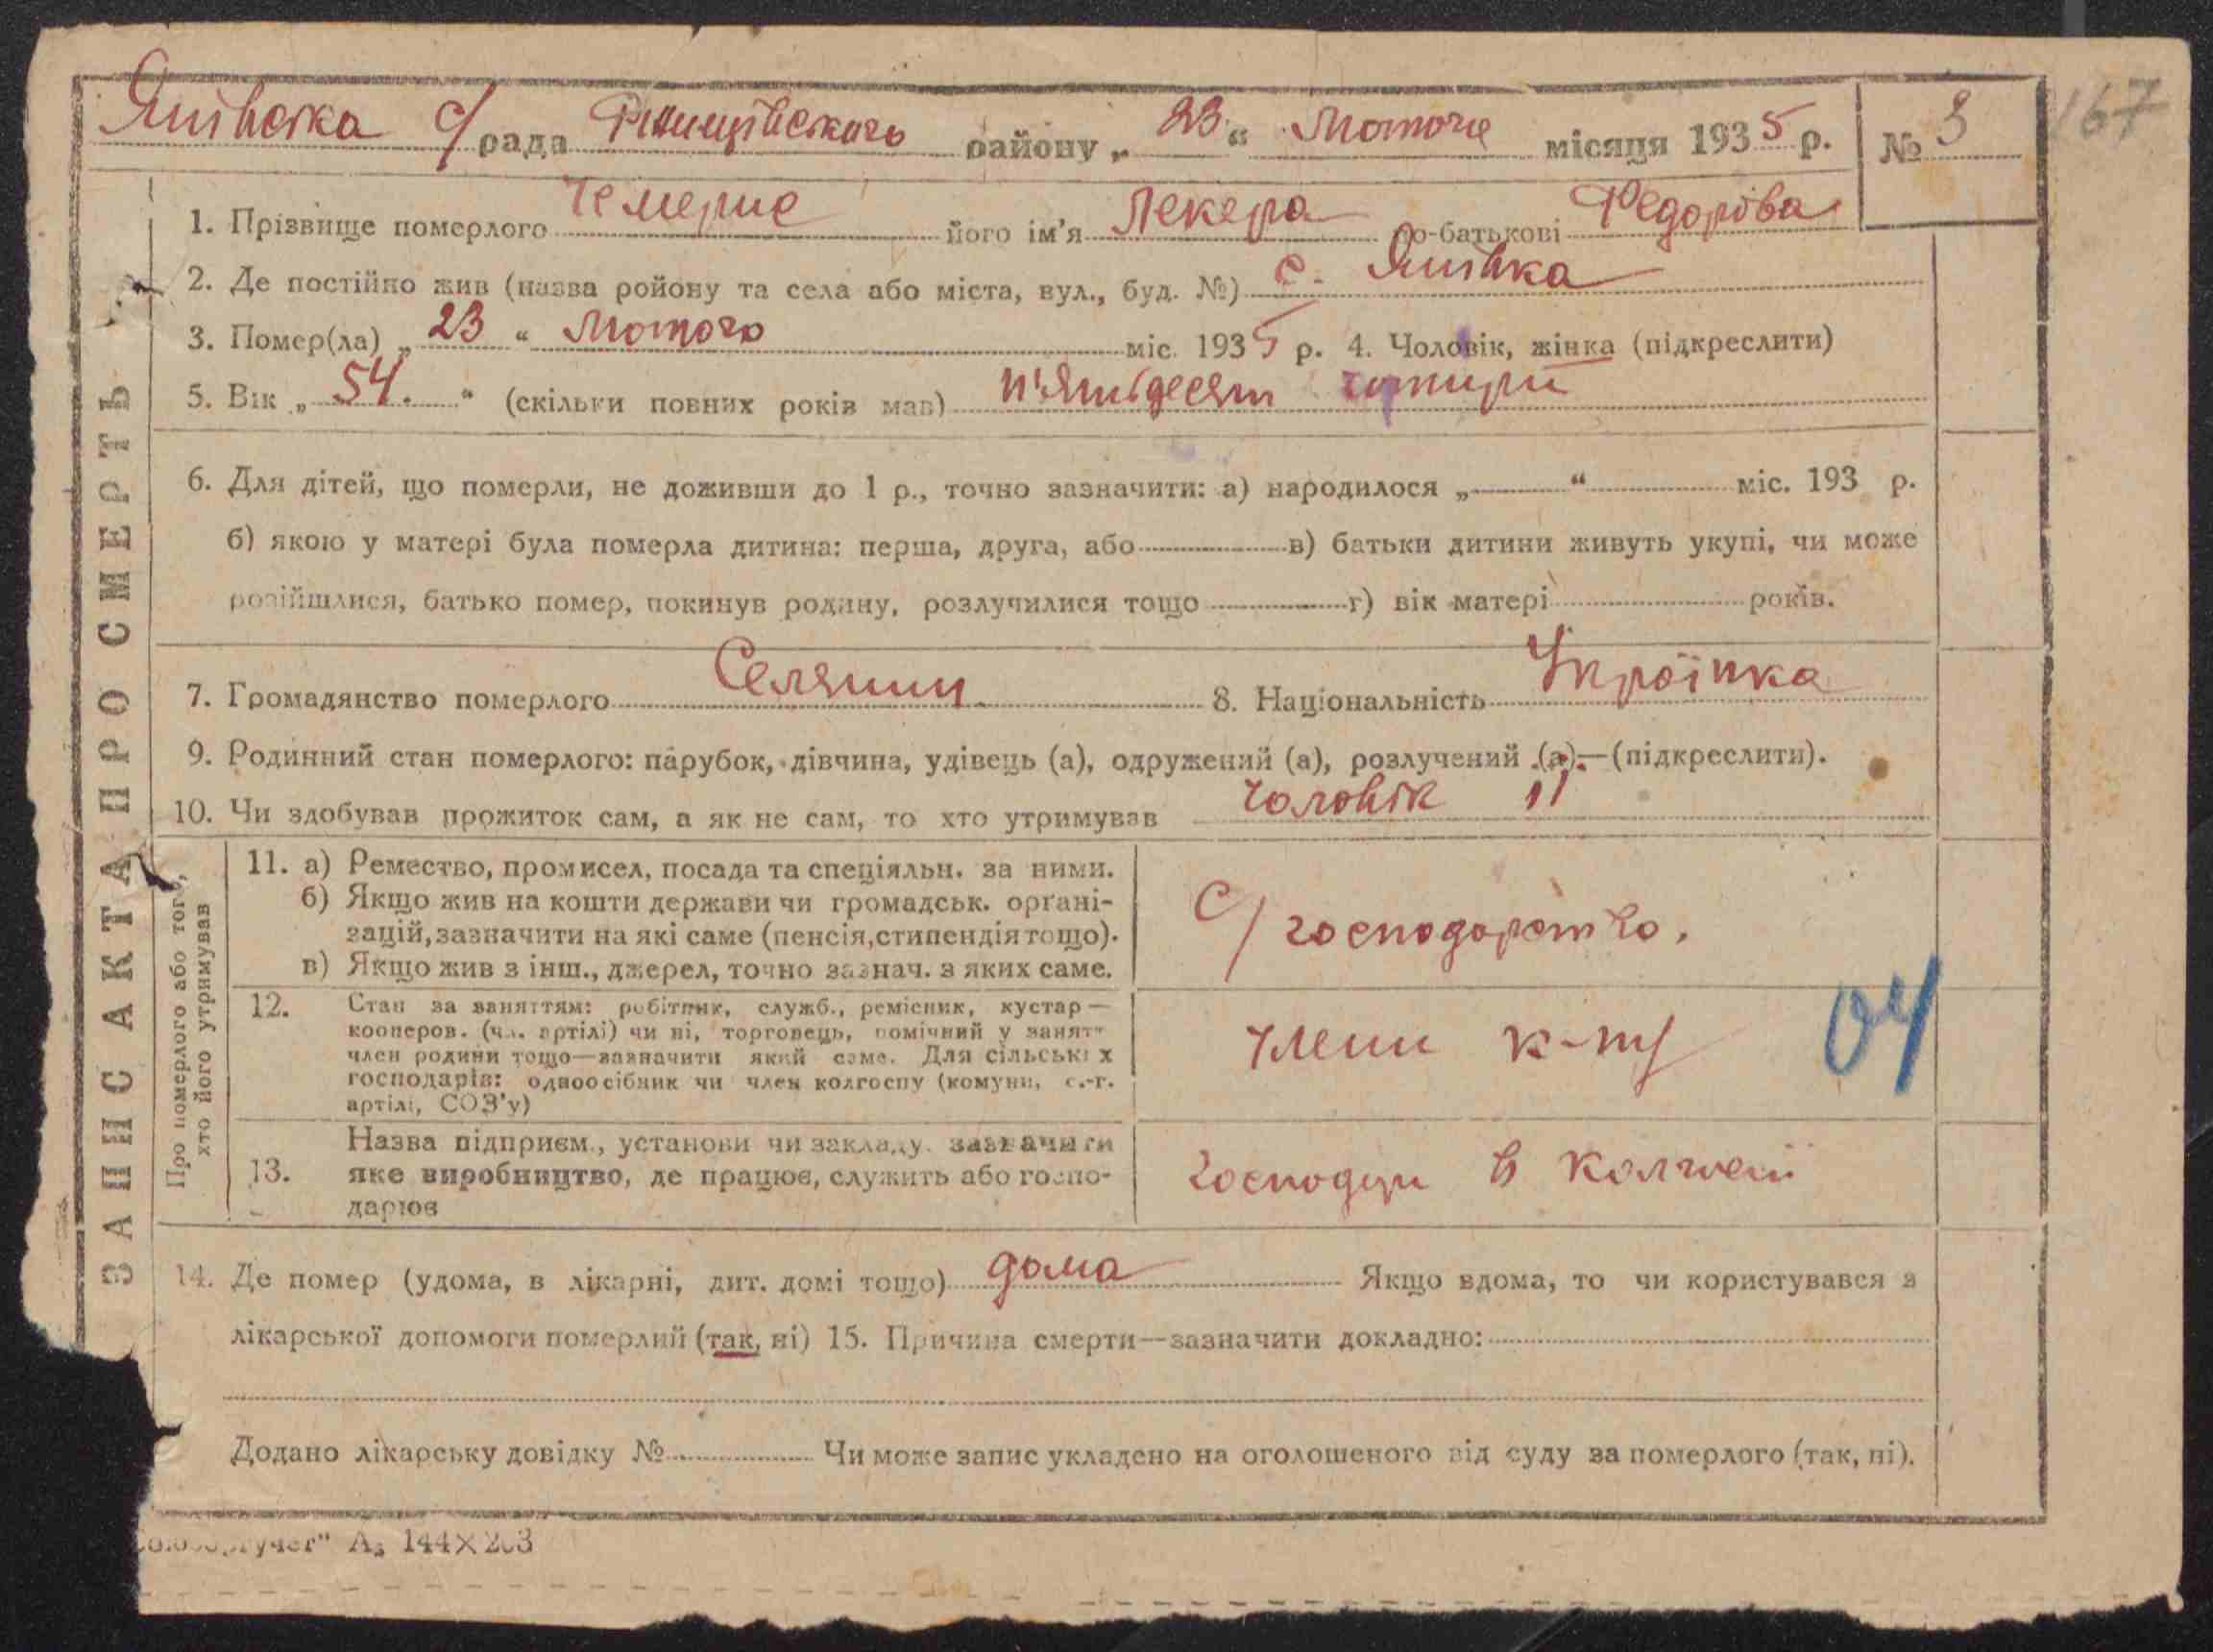 Яшівська с/рада Ріпинцівського району „23“ Лютого місяця 1935 р. № 3
167
1. Прізвище померлого Чемерис його ім'я Лекера по-батькові Федорова
2. Де постійно жив (назва ройону та села або міста, вул., буд. №) с. Яшівка
3. Помер(ла) „23“ Лютого міс. 1935 р. 4. Чоловік, жінка (підкреслити)
5. Вік „54.“ (скільки повних років мав) п'ятьдесят чотири
6. Для дітей, що померли, не доживши до 1 р., точно зазначити: а) народилося „ “ міс. 193 р.
б) якою у матері була померла дитина: перша, друга, або в) батьки дитини живуть укупі, чи може
розійшлися, батько помер, покинув родину, розлучилися тощо г) вік матері років.
7. Громадянство померлого Селянин 8. Національність Українка
9. Родинний стан померлого: парубок, дівчина, удівець (а), одружений (а), розлучений (а)—(підкреслити).
10. Чи здобував прожиток сам, а як не сам, то хто утримував чоловік її
ЗАПИС АКТА ПРО СМЕРТЬ
Про померлого або того,
хто його утримував
11. а) Ремество, промисел, посада та спеціяльн. за ними.
б) Якщо жив на кошти держави чи громадськ. органі-
зацій, зазначити на які саме (пенсія, стипендія тощо).
в) Якщо жив з інш., джерел, точно зазнач. з яких саме.
с/господарство.
12. Стан за заняттям: робітник, служб., ремісник, кустар—
кооперов. (чл. артілі) чи ні, торговець, помічний у занятт
член родини тощо—зазначити який саме. Для сільських
господарів: одноосібник чи член колгоспу (комуни, с.-г.
артілі, СОЗ'у)
члени к-ту
04
13. Назва підприєм., установи чи закладу. зазначити
яке виробництво, де працює, служить або госпо-
дарює
господар в колгоспі
14. Де помер (удома, в лікарні, дит. домі тощо) дома Якщо вдома, то чи користувався з
лікарської допомоги померлий (так, ні) 15. Причина смерти—зазначити докладно:
Додано лікарську довідку № Чи може запис укладено на оголошеного від суду за померлого (так, ні).
учет" А₅ 144×203